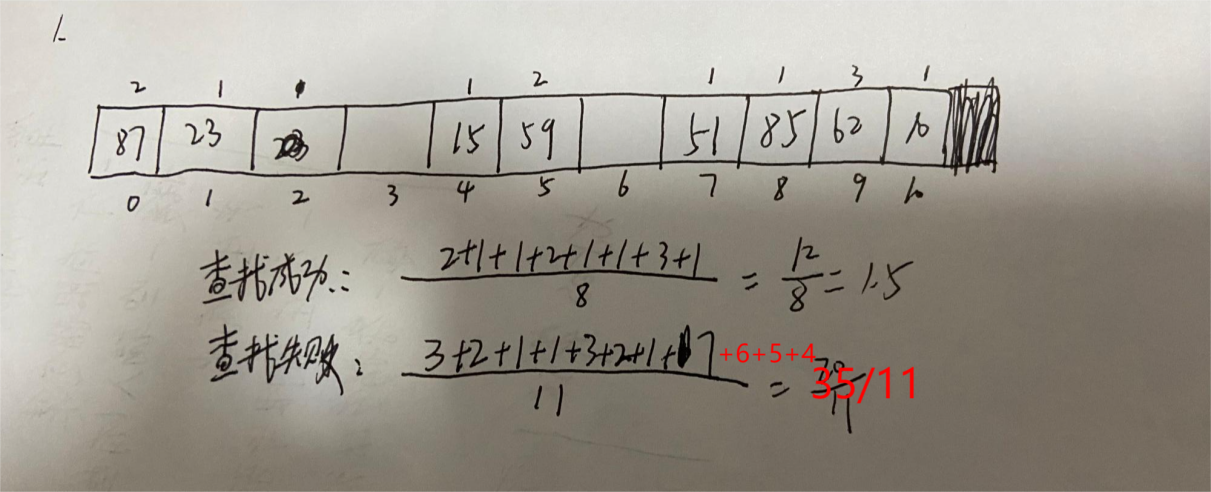 1.
2 1 1 2 1 1 3 1
87 23 15 59 51 85 62 10
0 1 2 3 4 5 6 7 8 9 10
查找成功: 2+1+1+2+1+1+3+1 / 8 = 12/8 = 1.5
查找失败: 3+2+1+1+3+2+1+7 +6+5+4 / 11 = 35/11